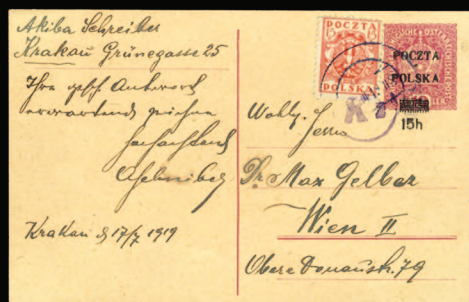 Akiba Schreiber
Krakau Grünegasse 25
Ihre gesch Antwort
erwartend zeichne
hochachtend
ASchreiber
Krakau d 17/7 1919
POCZTA
15 15
POLSKA
POCZTA
POLSKA
15h
Wohlg.
Herrn
Dr Max Gelber
Wien II
Obere Donaustr. 79